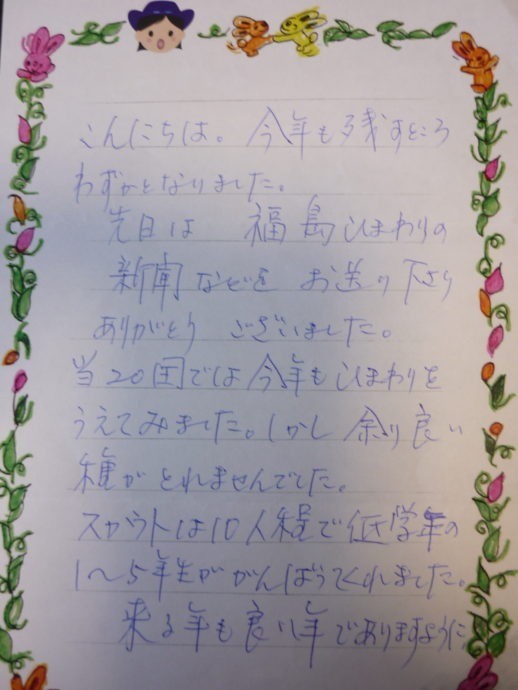 こんにちは。今年も残すところ
わずかとなりました。
先日は 福島ひまわりの
新聞などを お送り下さり
ありがとう ございました。
当20団では今年もひまわりを
うえてみました。しかし余り良い
種がとれませんでした。
スカウトは10人程で低学年の
1〜5年生ががんばってくれました。
来る年も良い年でありますように